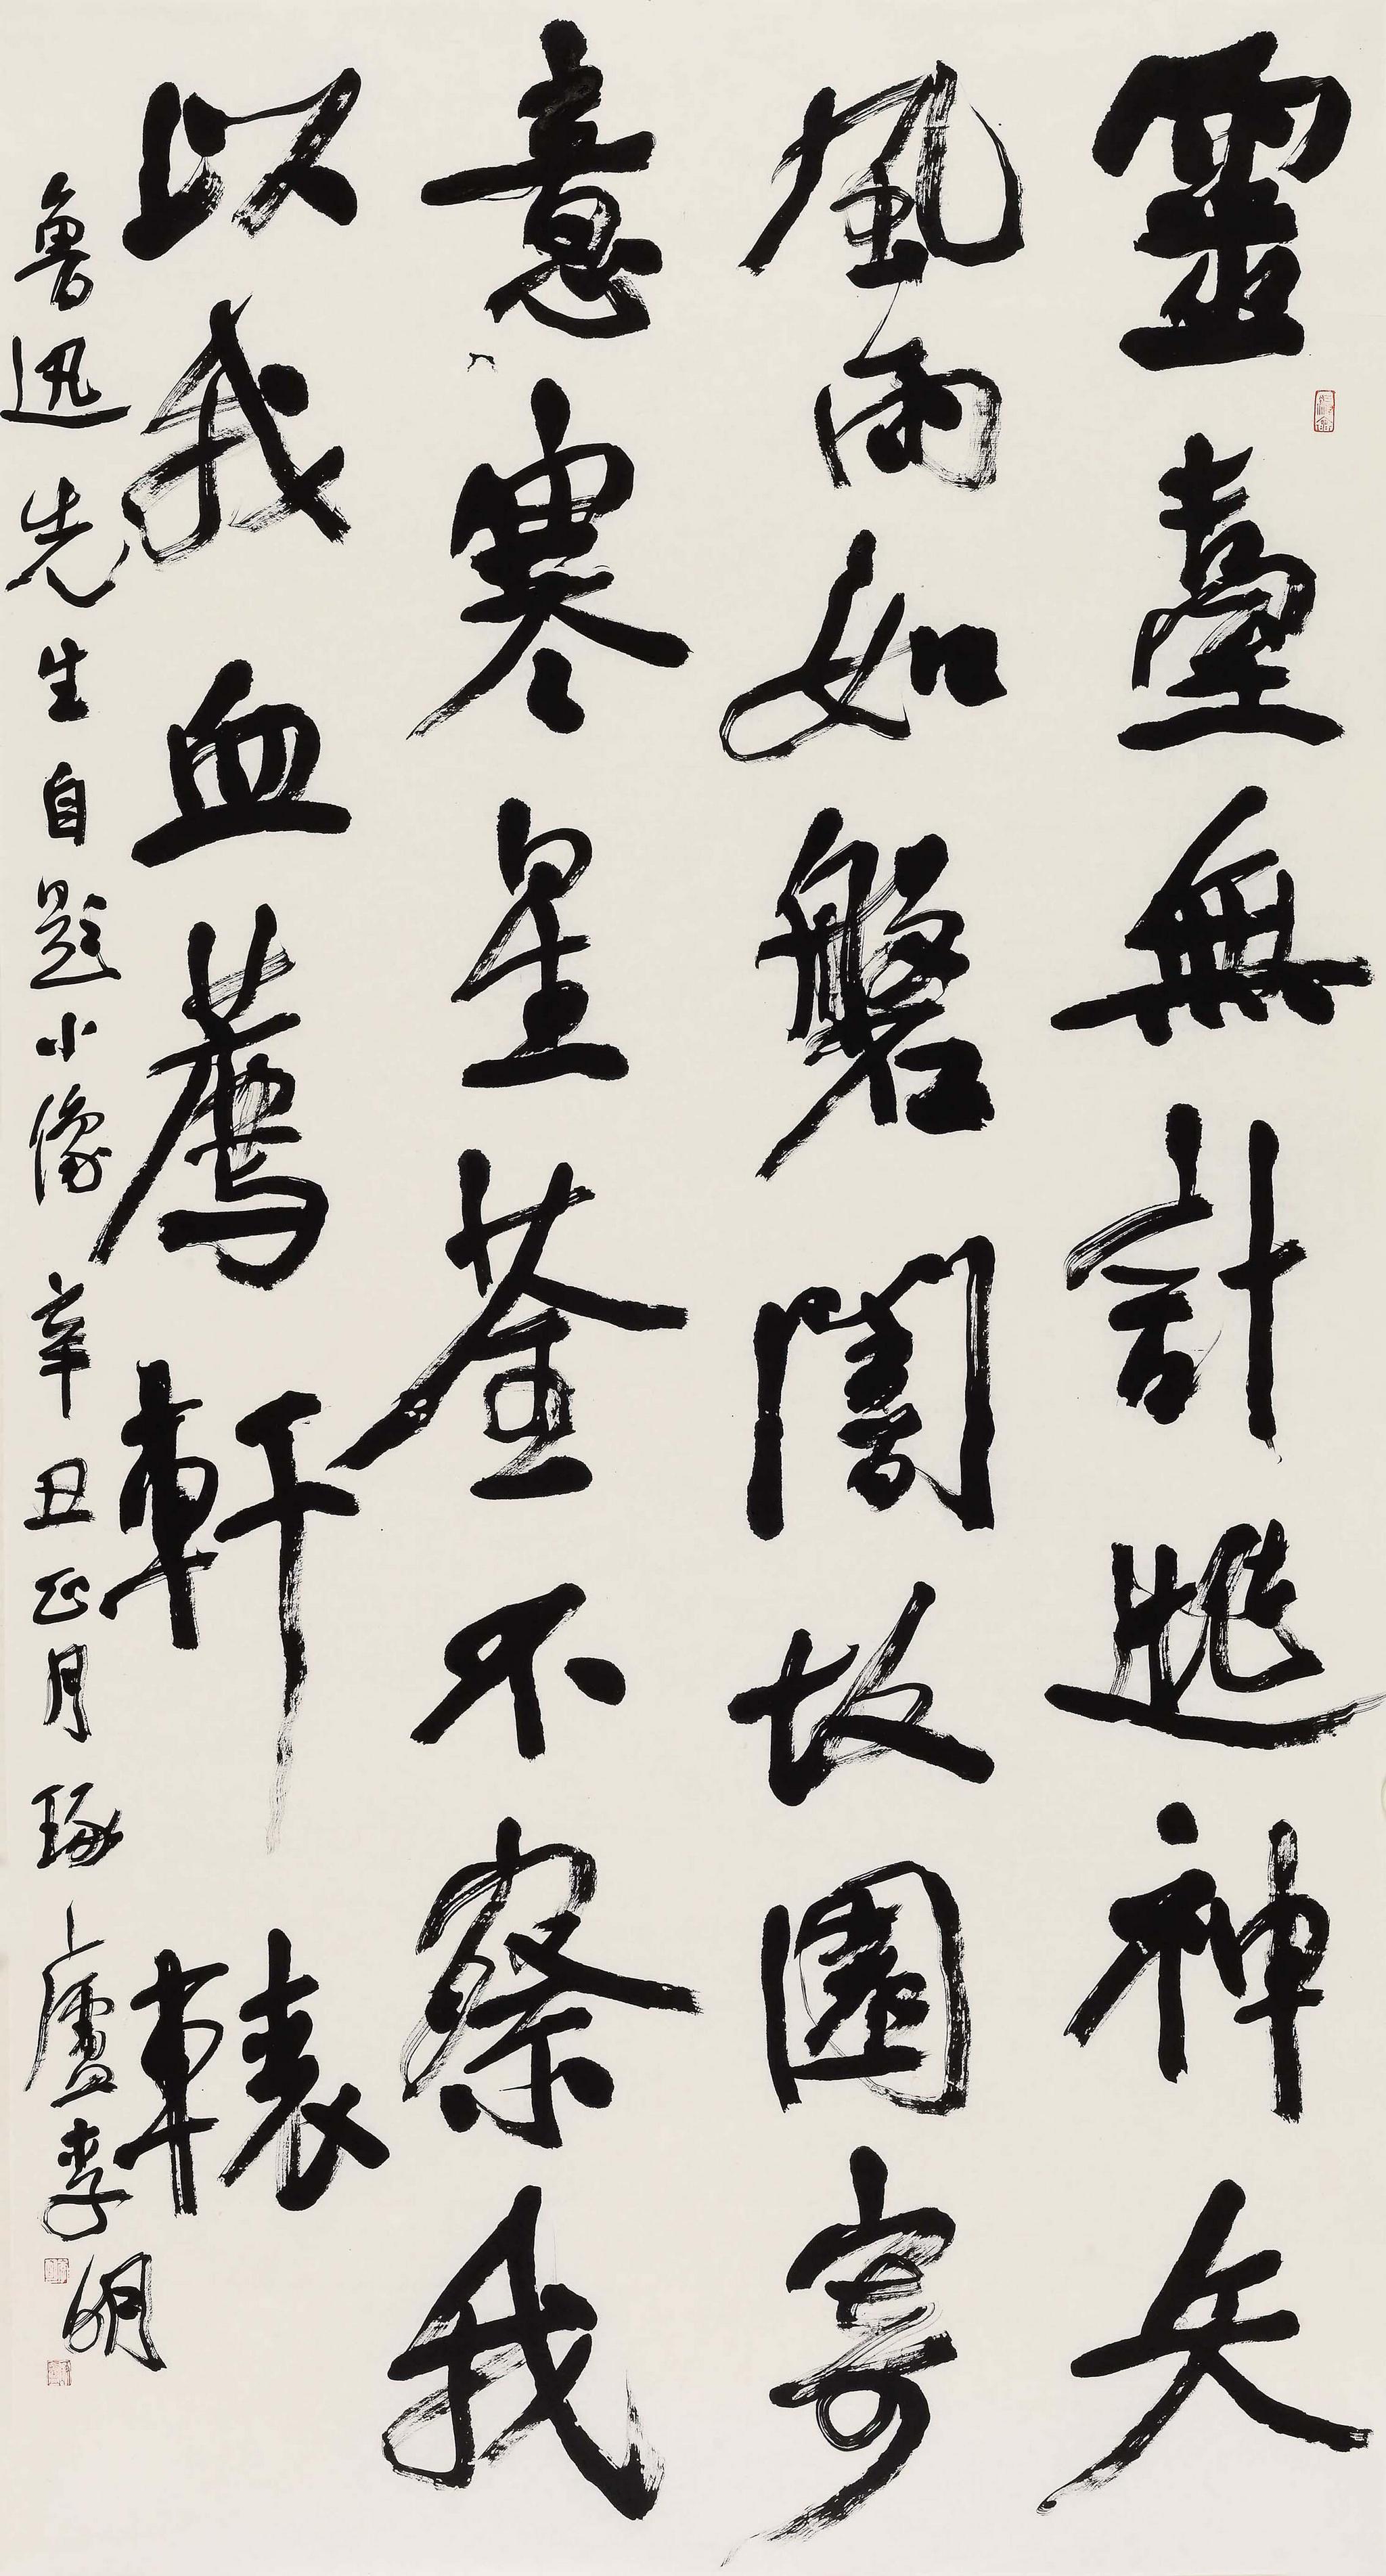 靈臺無計逃神矢
風雨如磐闇故園寄
意寒星荃不察我
以我血薦軒轅
魯迅先生自題小像 辛丑正月 琢廬李明